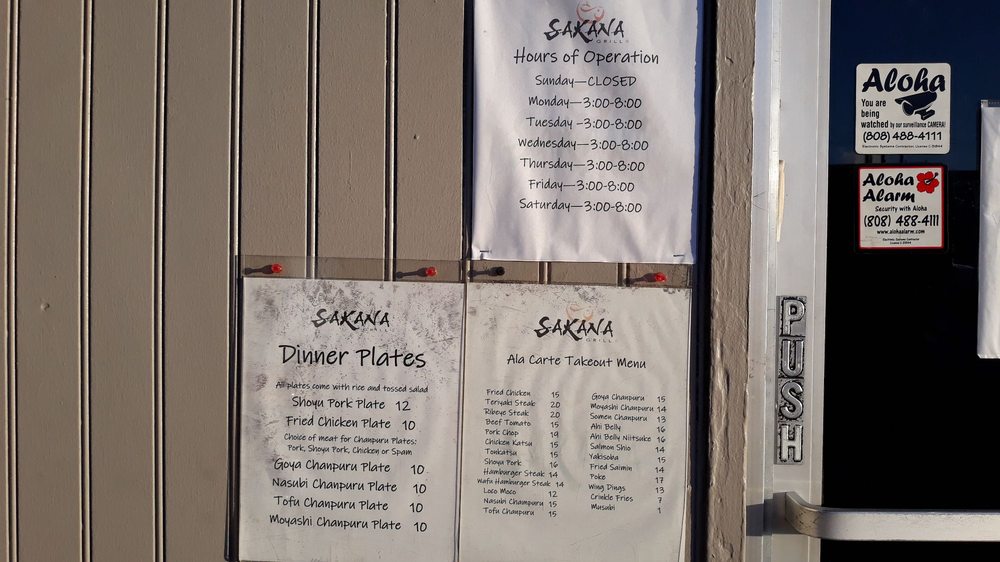 SAKANA
GRILL
Hours of Operation
Sunday—CLOSED
Monday—3:00-8:00
Tuesday -3:00-8:00
Wednesday—3:00-8:00
Thursday—3:00-8:00
Friday—3:00-8:00
Saturday—3:00-8:00
SAKANA
GRILL
Dinner Plates
All plates come with rice and tossed salad
Shoyu Pork Plate 12
Fried Chicken Plate 10
Choice of meat for Chanpuru Plates:
Pork, Shoyu Pork, Chicken or Spam
Goya Chanpuru Plate 10
Nasubi Chanpuru Plate 10
Tofu Chanpuru Plate 10
Moyashi Chanpuru Plate 10
SAKANA
GRILL
Ala Carte Takeout Menu
Fried Chicken 15
Teriyaki Steak 20
Ribeye Steak 20
Beef Tomato 15
Pork Chop 19
Chicken Katsu 15
Tonkatsu 15
Shoyu Pork 16
Hamburger Steak 14
Wafu Hamburger Steak 14
Loco Moco 12
Nasubi Champuru 15
Tofu Chanpuru 15
Goya Chanpuru 15
Moyashi Chanpuru 14
Somen Chanpuru 13
Ahi Belly 16
Ahi Belly Niitsuke 16
Salmon Shio 14
Yakisoba 15
Fried Saimin 14
Poke 17
Wing Dings 13
Crinkle Fries 7
Musubi 1
Aloha
You are
being
watched by our surveillance CAMERA!
(808) 488-4111
Aloha
Alarm
Security with Aloha
(808) 488-4111
www.alohaalarm.com
PUSH